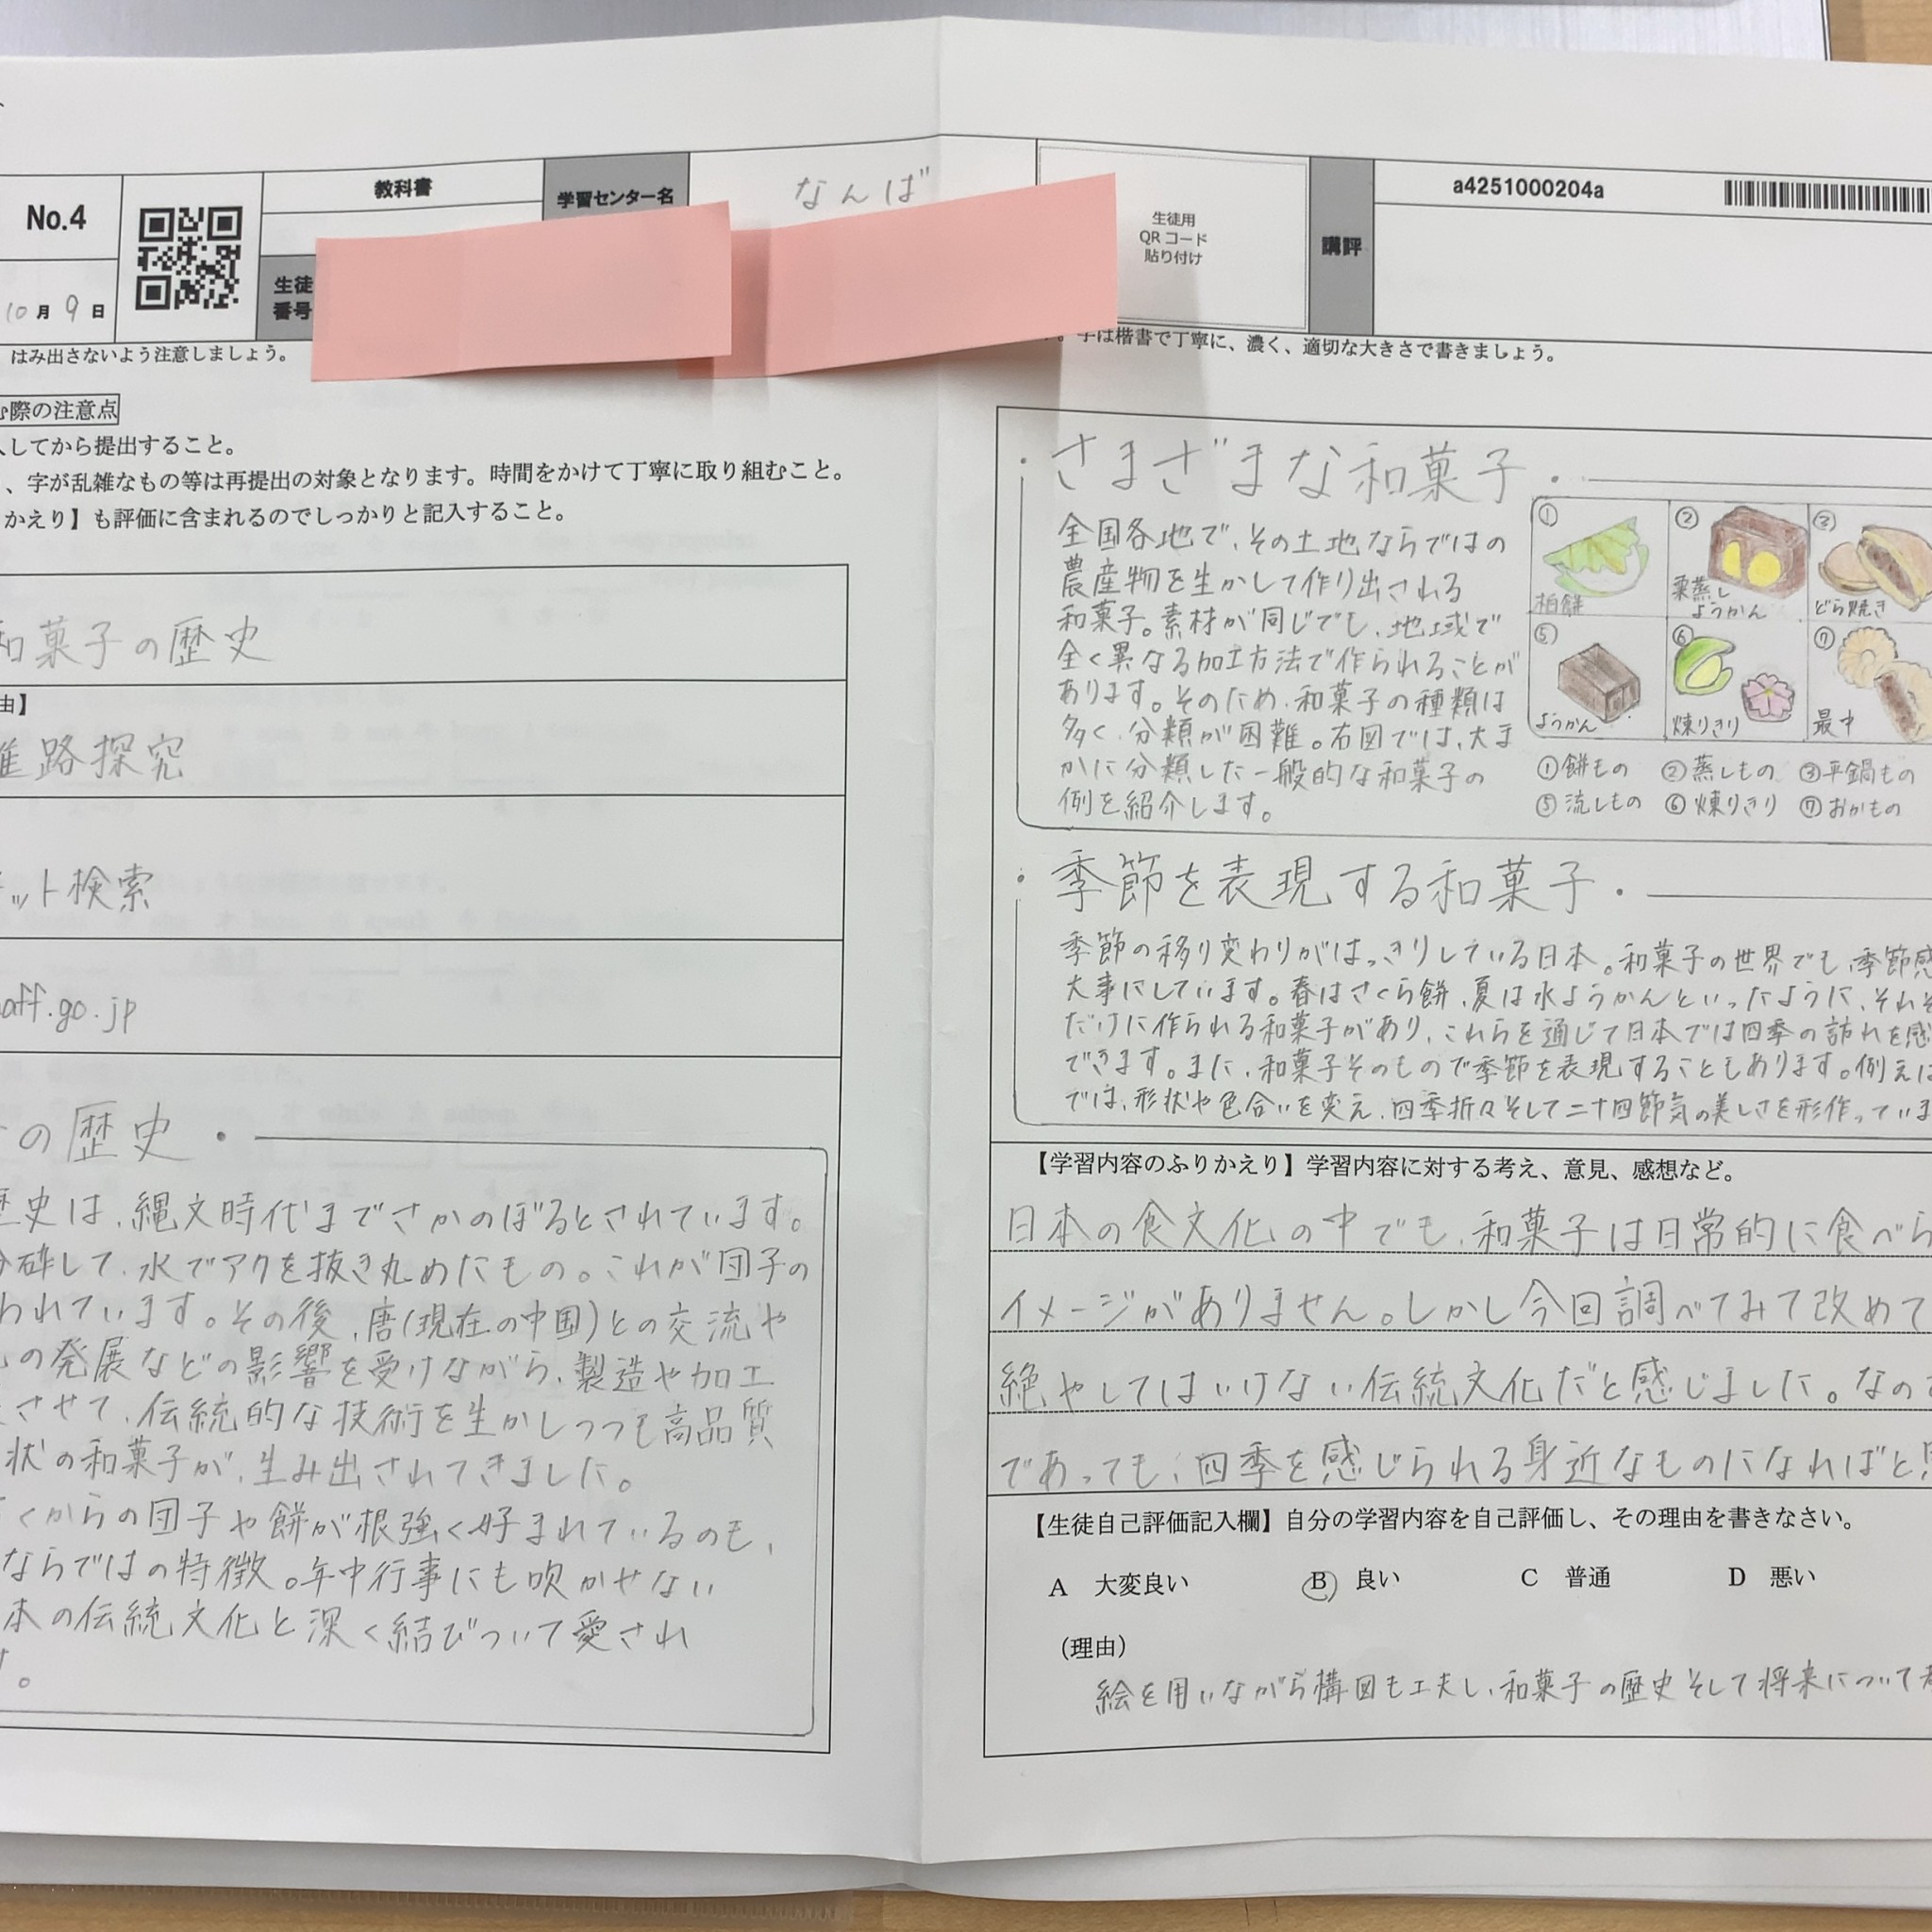 No.4
10月9日
教科書
学習センター名
なんば
生徒
番号
生徒用
QRコード
貼り付け
講評
a4251000204a
はみ出さないよう注意しましょう。
字は楷書で丁寧に、濃く、適切な大きさで書きましょう。
際の注意点
してから提出すること。
、字が乱雑なもの等は再提出の対象となります。時間をかけて丁寧に取り組むこと。
かえり】も評価に含まれるのでしっかりと記入すること。
和菓子の歴史
由】
進路探究
ット検索
aff.go.jp
の歴史
歴史は、縄文時代までさかのぼるとされています。
砕して、水でアクを抜き丸めたもの。これが団子の
われています。その後、唐(現在の中国)との交流や
の発展などの影響を受けながら、製造や加工
させて、伝統的な技術を生かしつつも高品質
状の和菓子が、生み出されてきました。
くからの団子や餅が根強く好まれているのも、
ならではの特徴。年中行事にも吹かせない
本の伝統文化と深く結びついて愛され
。
さまざまな和菓子
全国各地で、その土地ならではの
農産物を生かして作り出される
和菓子。素材が同じでも、地域で
全く異なる加工方法で作られることが
あります。そのため、和菓子の種類は
多く、分類が困難。右図では、大ま
かに分類した一般的な和菓子の
例を紹介します。
① 柏餅
② 栗蒸し
ようかん
③ どら焼き
⑤ ようかん
⑥ 煉りきり
⑦ 最中
①餅もの ②蒸しもの ③平鍋もの
⑤流しもの ⑥煉りきり ⑦おかもの
季節を表現する和菓子
季節の移り変わりがはっきりしている日本。和菓子の世界でも、季節感
大事にしています。春はさくら餅、夏は水ようかんといったように、それぞ
だけに作られる和菓子があり、これらを通じて日本では四季の訪れを感
できます。また、和菓子そのもので季節を表現することもあります。例えば
では、形状や色合いを変え、四季折々そして二十四節気の美しさを形作っていま
【学習内容のふりかえり】学習内容に対する考え、意見、感想など。
日本の食文化の中でも、和菓子は日常的に食べら
イメージがありません。しかし今回調べてみて改めて
絶やしてはいけない伝統文化だと感じました。なので
であっても、四季を感じられる身近なものになればと思
【生徒自己評価記入欄】自分の学習内容を自己評価し、その理由を書きなさい。
A 大変良い B 良い C 普通 D 悪い
(理由)
絵を用いながら構図も工夫し、和菓子の歴史そして将来について